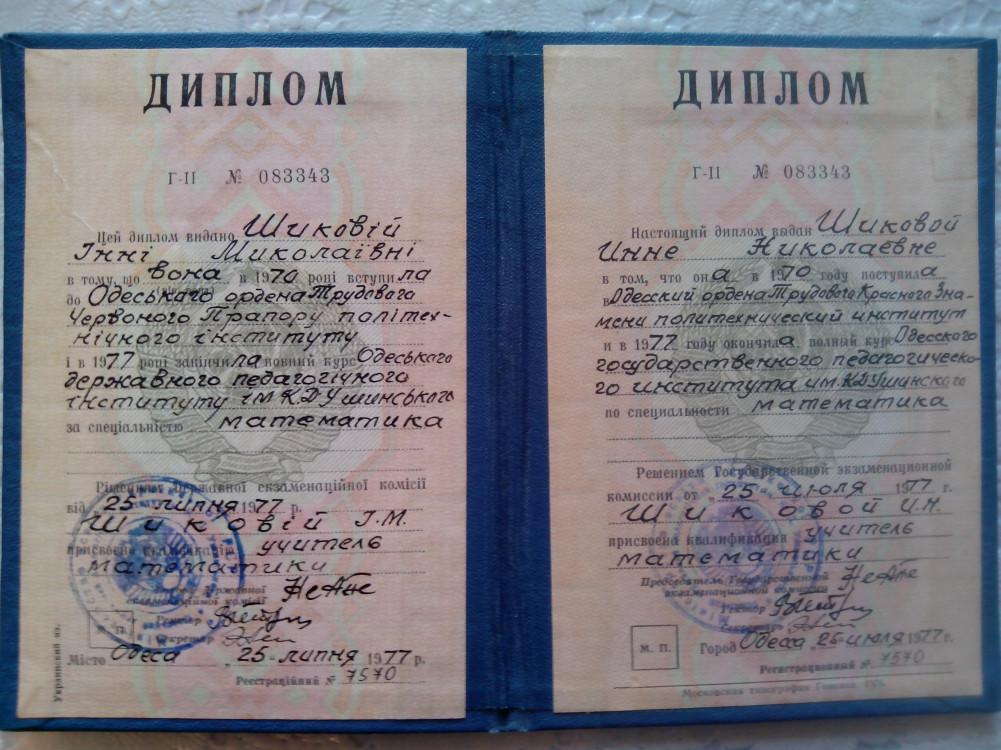 ДИПЛОМ
Г-II № 083343
Цей диплом видано Шиковій
Інні Миколаївні
в тому, що вона в 1970 році вступила
до Одеського ордена Трудового
Червоного Прапору політех-
нічного інституту
і в 1977 році закінчила повний курс Одеського
державного педагогічного
інституту ім К.Д Ушинського
за спеціальністю математика
Рішенням Державної екзаменаційної комісії
від 25 липня 1977 р.
Шиковій І.М.
присвоєна кваліфікацію учитель
математики
Державної
екзаменаційної комісії
Ректор
Секретар
М. П.
Місто Одеса „25„ липня 1977 р.
Реєстраційний № 7570
Украинский яз.
ДИПЛОМ
Г-II № 083343
Настоящий диплом выдан Шиковой
Инне Николаевне
в том, что она в 1970 году поступила
в Одесский ордена Трудового Красного Зна-
мени политехнический институт
и в 1977 году окончила полный курс Одесского
государственного педагогическо-
го института им. К.Д Ушинского
по специальности математика
Решением Государственной экзаменационной
комиссии от 25 июля 1977 г.
Шиковой И.Н.
присвоена квалификация учитель
математики
Председатель Государственной
экзаменационной комиссии
Ректор
Секретарь
М. П.
Город Одесса, 25 июля 1977 г.
Регистрационный № 7570
Московская типография Гознака.